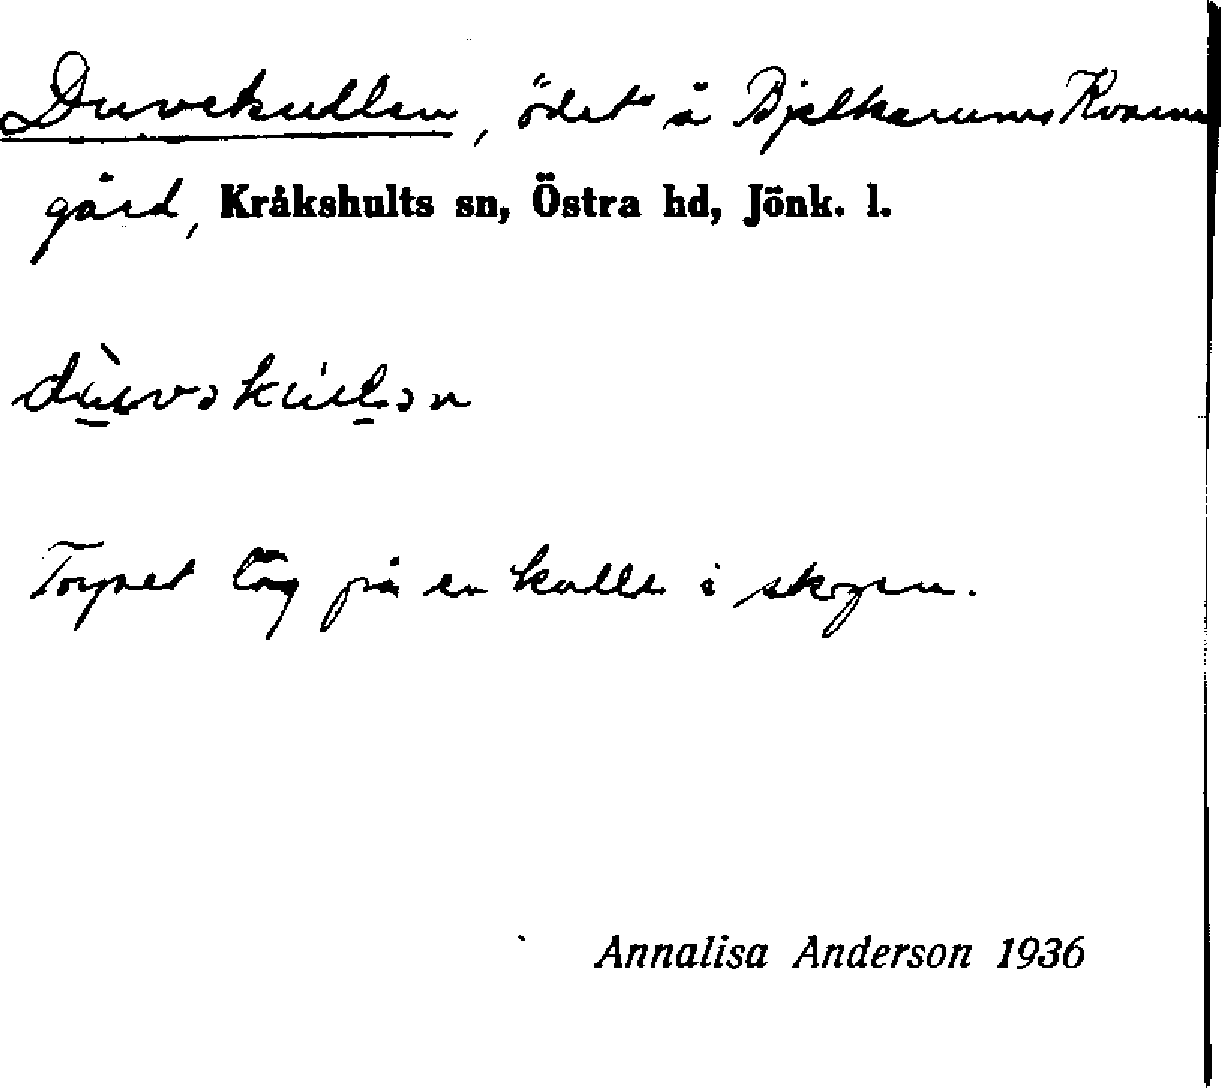 Duvekullen, ödet å Bjelkerums Kvarn
gård, Kråkshults sn, Östra hd, Jönk. l.
dùvəkúlən
Torpet låg på en kulle i skogen.
Annalisa Anderson 1936